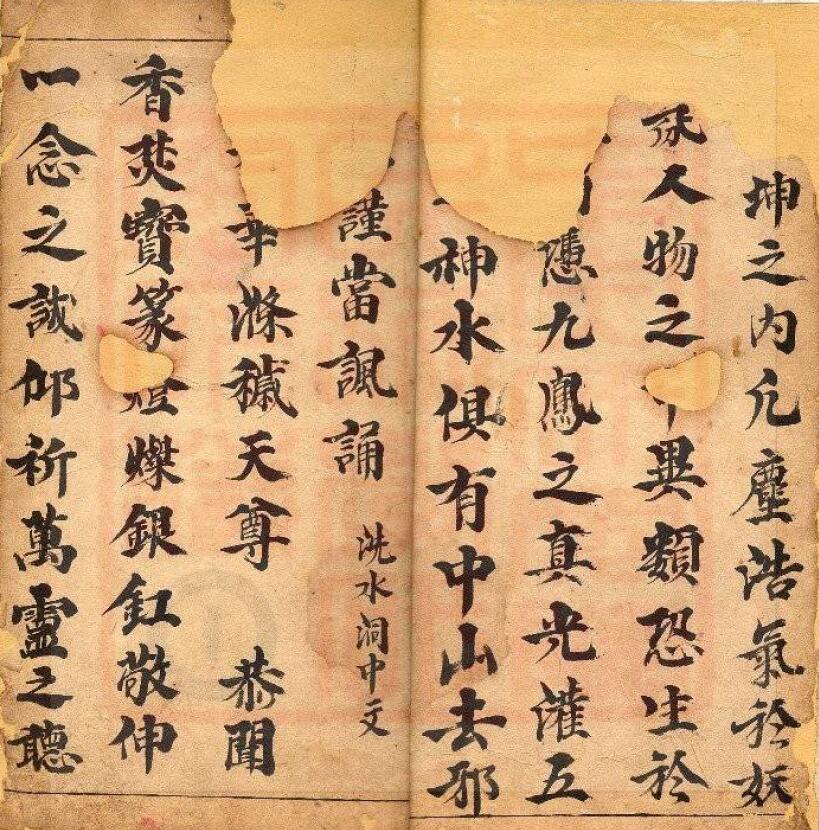 坤之内凡塵浩氣於妖
人物之異類恐生於
憑九鳳之真光灌五
神水俱有中山去邪
謹當諷誦 洗水洞中文
華滌穢天尊 恭聞
香焚寶篆燈燦銀釭敬伸
一念之誠仰祈萬靈之聽